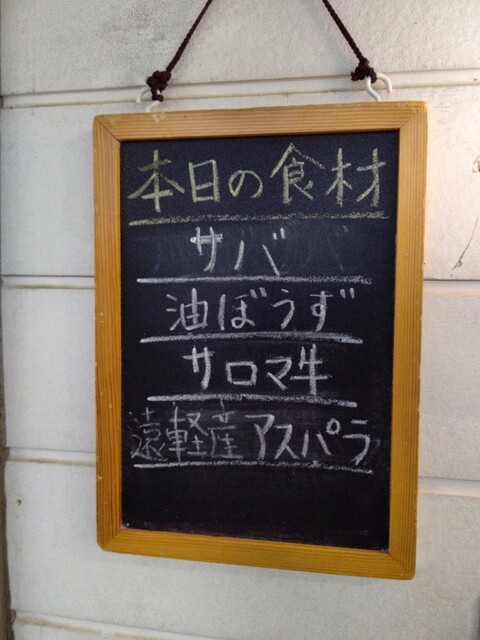 本日の食材
サバ
油ぼうず
サロマ牛
遠軽産アスパラ